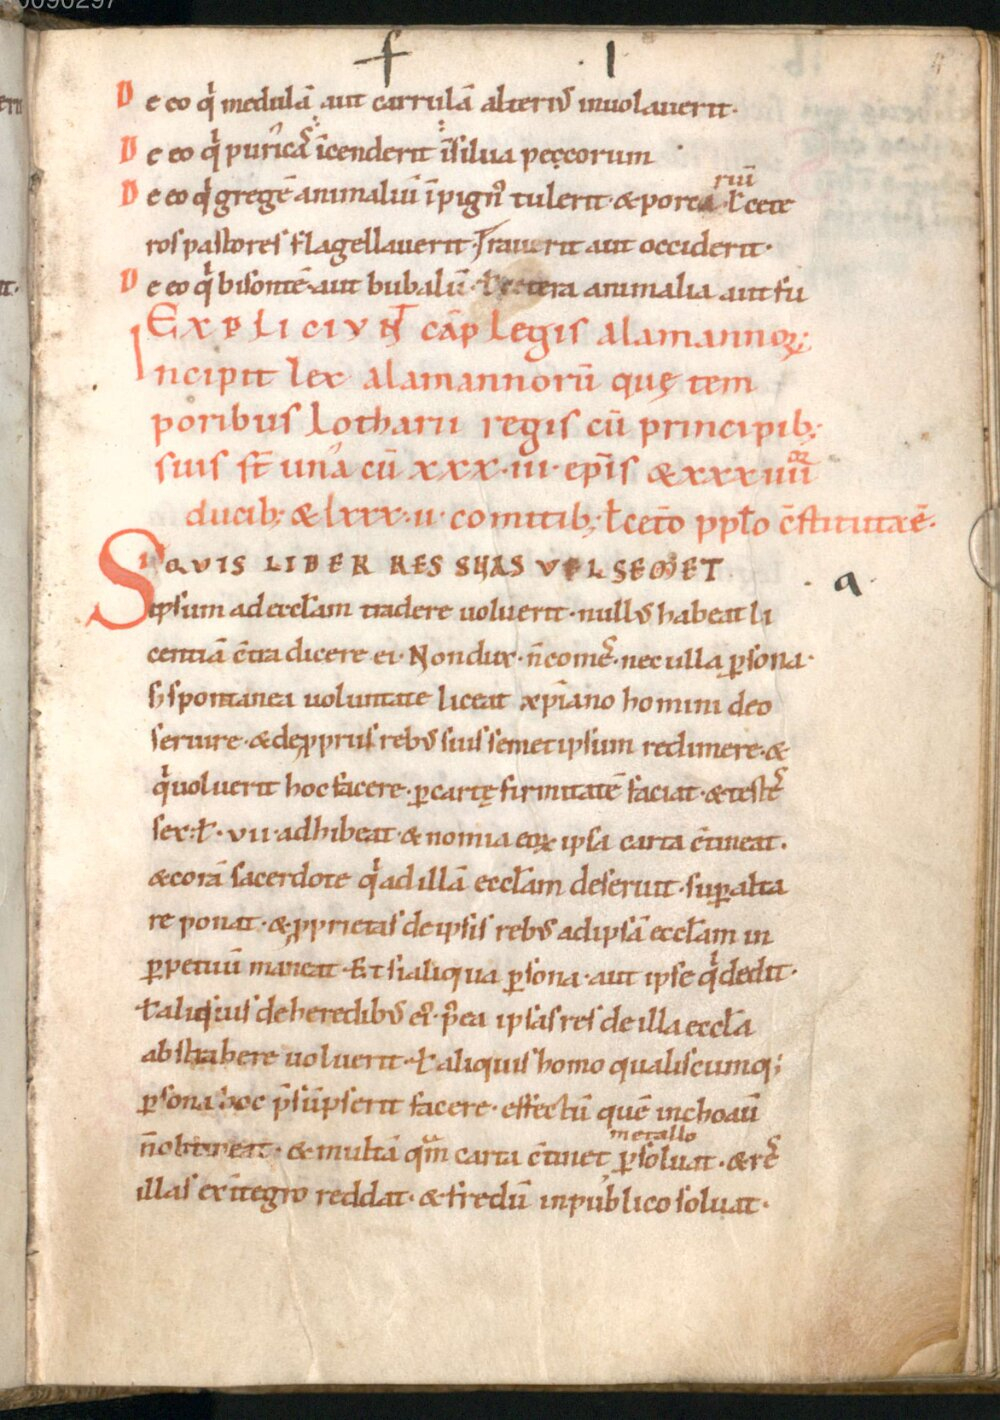 f l
De eo q̇ medulā aut carrulā alteriꝰ inuolauerit·
De eo q̇ puricā īcenderit ī silua pęccorum
riū
De eo q̇ gregē animaliū ī pignꝰ tulerit· & porca ł cete
ros pastores flagellauerit· aut occiderit·
De eo q̇ bisontē aut bubalū· ł cetera animalia aut fu
EXPLICIVNT cāp legis alamannoꝝ:
Incipit lex alamannorū quę tem
poribus Lotharii regis cū principib;
suis sт̄ una cū xxx·iii· ep̄is & xxxiiii
ducib; & lxxx·ii· comitib; ł cet̄o ppło c̄stituta ē·
SI QVIS LIBER RES SUAS VEL SEMET
a
ipsum ad eccłam tradere uoluerit· nullꝰ habeat li
centiā c̄tra dicere ei· Non dux· n̄ comēs· nec ulla ꝑsona·
sꝫ spontanea uoluntate liceat xp̄iano homini deo
seruire· & de ꝓpriis rebꝰ suis semet ipsum redimere· &
q̇ uoluerit hoc facere· ꝑ cartę firmitatē faciat· & testēs
sex· ł· vii· adhibeat· & nomia eoꝝ ipsa carta c̄tineat·
& corā sacerdote q̇ ad illā eccłam deseruit· suꝑ alta
re ponat· & ꝓprietas de ipsis rebꝰ ad ipsā eccłam in
ꝑpetuū maneat· Et si aliqua ꝑsona· aut ipse q̇ dedit·
ł aliquis de heredibꝰ eiꝰ· p̄ ea ipsas res de illa eccła
abstrahere uoluerit· ł aliquis homo qualiscumq;
ꝑsona hoc p̄sūpserit facere· effectū quē inchoauī
metallo
n̄ obtineat· & multā quā carta c̄tinet ꝑsoluat· & rēs
illas ex ītegro reddat· & fredū in publico soluat·